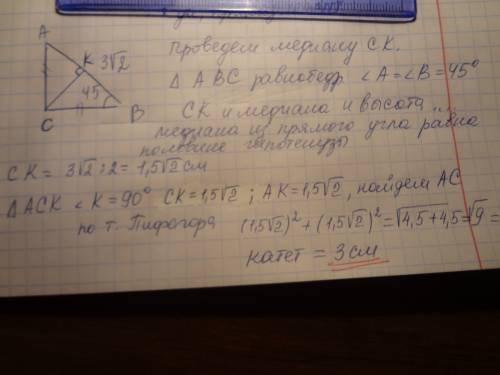 Проведем медиану СК.
A
K 3√2
Δ АВС равнобедр. ∠A=∠B=45°
45
C
B
СК и медиана и высота
медиана из прямого угла равна
половине гипотенузы
CK = 3√2:2=1,5√2 см
Δ ACK ∠K=90° CK=1,5√2 ; AK=1,5√2, найдем AC
по т. Пифагора (1,5√2)²+(1,5√2)²=√4,5+4,5=√9=
катет = 3 см